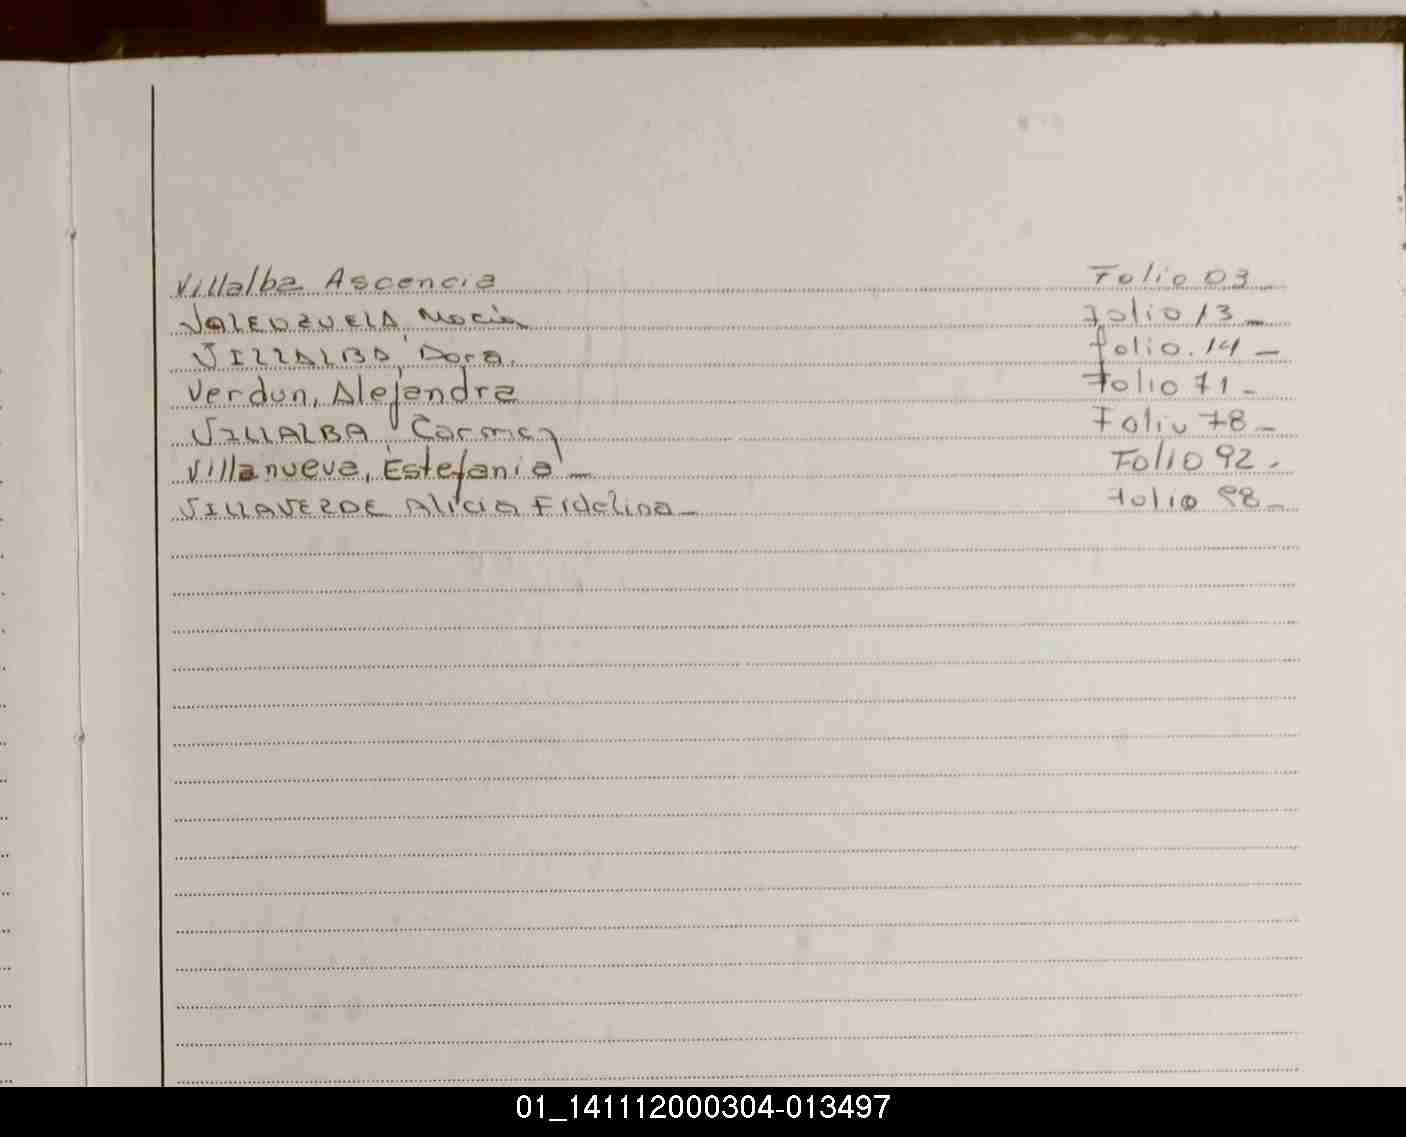 Villalba Ascencia Folio 03
VALENZUELA, María Folio 13-
VILLALBA, Dora. folio. 14-
Verdun, Alejandra Folio 71-
VILLALBA, Carmen Folio 78-
Villanueva, Estefania- Folio 92.
VILLAVERDE Alicia Fidelina- Folio 98-
01_141112000304-013497